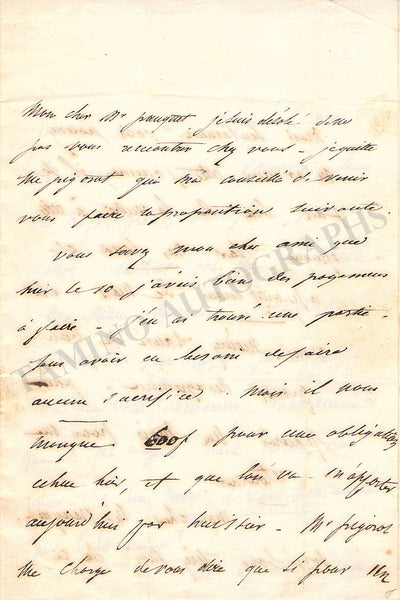 Mon cher Mr pauquet je suis désolé de ne
pas vous rencontrer chez vous – je quitte
Mr pigorot qui m'a conseillé de venir
vous faire la proposition suivante
vous savez mon cher ami que
hier le 10 j'avais bien des payemens
à faire – j'en ai trouvé une partie –
sans avoir eu besoin de faire
aucun sacrifice – Mais il nous
manque 600f pour une obligation
échue hier, et que l'on va m'apporter
aujourd'hui par huissier – Mr pigorot
me charge de vous dire que si pour un
TAMINO AUTOGRAPHS